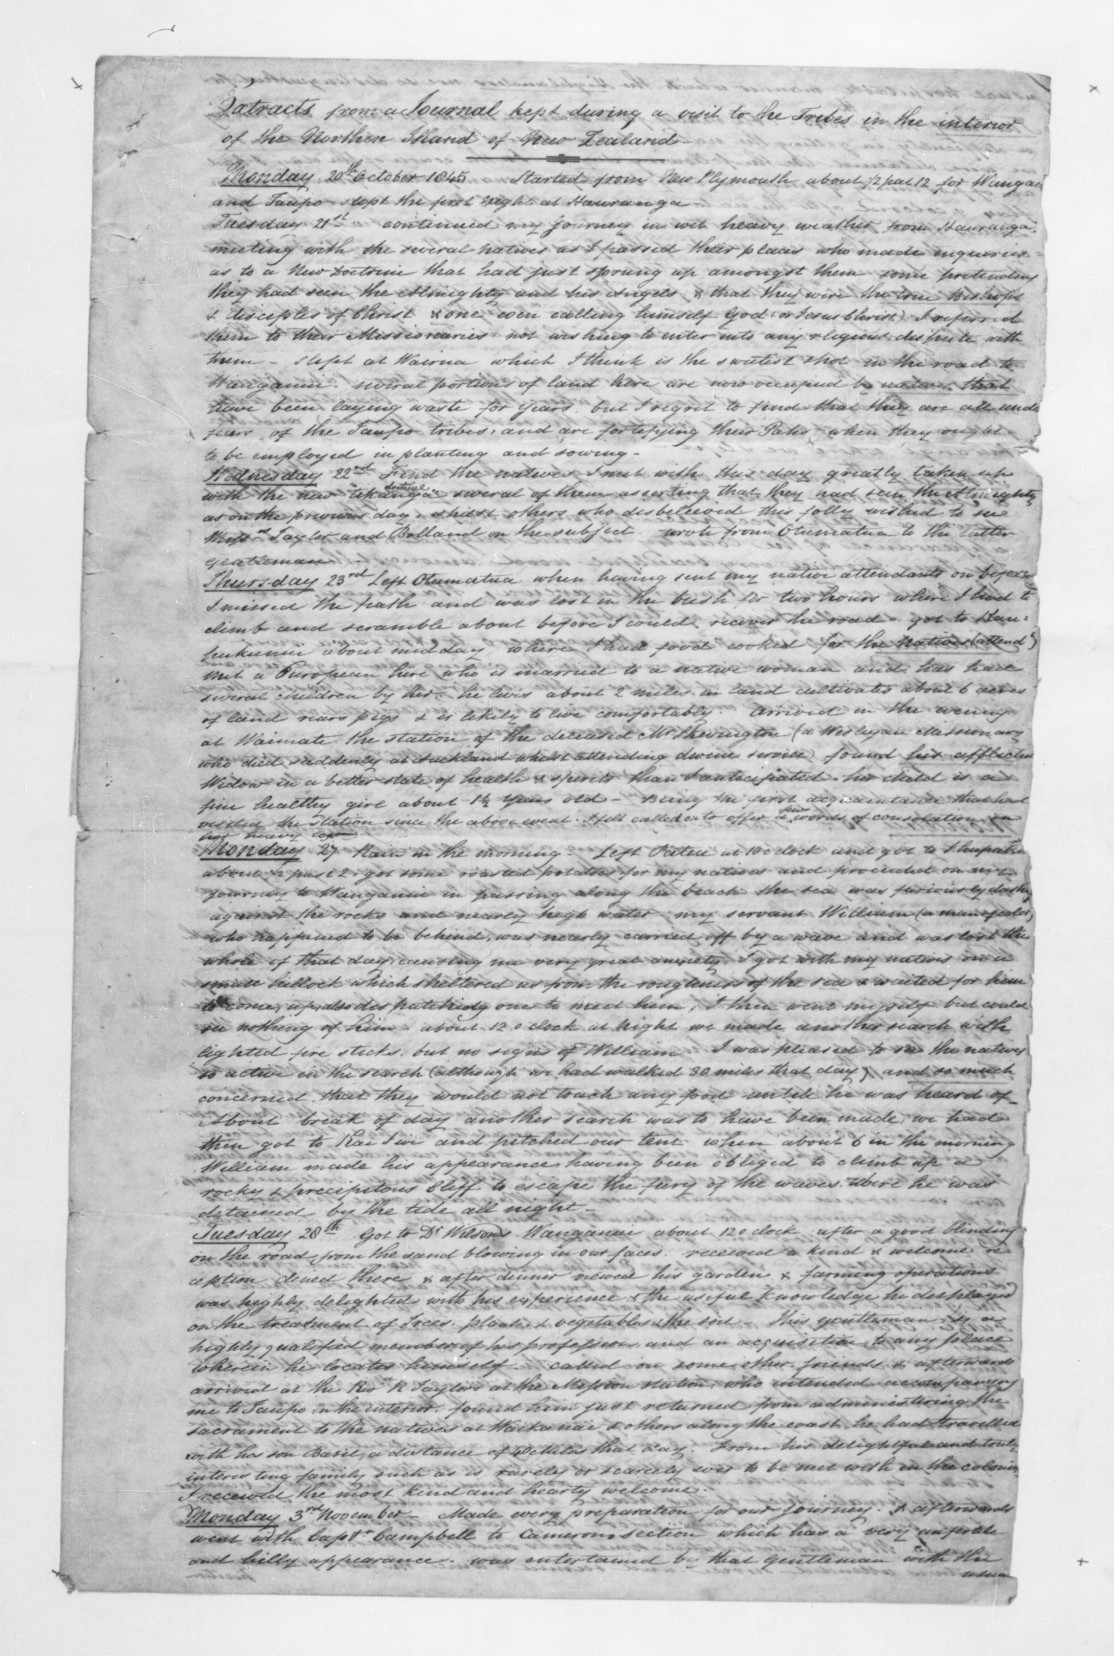 Extracts from a Journal kept during a visit to the Tribes in the interior
of the Northern Island of New Zealand
Monday 20th October 1845 Started from New Plymouth about 1/2 past 12 for Wangan
and Taupo slept the first night at Hauranga
Tuesday 21st continued my journey in wet heavy weather from Hauranga
meeting with the several natives as I passed their places who made enquiries
as to a New Doctrine that had just sprung up amongst them some pretending
they had seen the Almighty and his Angels & that they were the true Bishops
& disciples of Christ & one even calling himself God (or Jesus Christ) I referred
them to their Missionaries not wishing to enter into any religious dispute with
them - slept at Wairua which I think is the sweetest spot in the road to
Wanganui. several portions of land here are now occupied by natives that
have been laying waste for years. but I regret to find that they are all unde
fears of the Taupo tribes, and are fortifying their Pahs when they ought
to be employed in planting and sowing -
Wednesday 22nd Find the natives I met with this day greatly taken up
doctrine
with the new "tikanga" several of them asserting that they had seen the Almighty
as on the previous day, whilst others who disbelieved this folly wished to see
Messrs Taylor and Bolland on the subject. wrote from Otumatua to the latter
gentleman -
Thursday 23rd Left Otumatua when having sent my native attendants on before
I missed the path and was lost in the bush for two hours where I had to
climb and scramble about before I could recover the road - got to
about midday where I had food cooked for the natives (attends)
met a European here who is married to a native woman and has have
several children by her. he lives about 2 miles in land cultivates about 6 acres
of land rears pigs & is likely to live comfortably. Arrived in the evening
at Waimate the station of the deceased Mr Skevington (a Wesleyan Missionary
who died suddenly at Auckland whilst attending divine service) found his afflicted
Widow in a better state of health & spirits than I anticipated. her child is a
fine healthy girl about 1½ years old - Being the first acquaintance that had
few
visited the station since the above event. I felt called on to offer a words of consolation on
her heavy loss
Monday 27 Rain in the morning. Left Patea at 10 oclock and got to
about ½ past 2. got some roasted potatoes for my natives and proceeded on my
journey to Wanganui in passing along the beach the sea was furiously dashing
against the rocks and nearly high water my servant William (a man of color)
who happened to be behind, was nearly carried off by a wave and was lost the
whole of that day causing me very great anxiety. I got with my natives on a
small hillock which sheltered us from the roughness of the sea & waited for him
to come up, also despatching one to meet him, I then went myself but could
see nothing of him about 12 o clock at night we made another search with
lighted fire sticks. but no signs of William. I was pleased to see the natives
so active in the search (although we had walked 30 miles that day) and so much
concerned that they would not touch any food until he was heard of
About break of day another search was to have been made, we had
then got to Kai Iwi and pitched our tent when about 6 in the morning
William made his appearance having been obliged to climb up a
rocky & precipitous Cliff to escape the fury of the waves where he was
detained by the tide all night -
Tuesday 28th Got to Dr Wilsons Wanganui about 12 o clock after a good blinding
on the road from the sand blowing in our faces. received a kind & welcome re
ception dined there & after dinner viewed his garden & farming operations
was highly delighted with his experience & the useful knowledge he displayed
on the treatment of Trees, plants, & vegetables & the soil - This gentleman is a
highly qualified member of his profession and an acquisition to any place
wherein he locates himself - called on some other friends & afterwards
arrived at the Revd R Taylors at the Mission station, who intended accompanying
me to Taupo in the interior. found him just returned from administering the
sacrament to the natives at Waikanae & others along the coast. he had travelled
with his son Basil, a distance of 40 Miles that day. From his delightful and truly
interesting family such as is rarely or scarcely ever to be met with in the colonies
I received the most kind and hearty welcome -
Monday 3rd November - Made every preparation for our journey. & afterwards
went with Captn Campbell to Camerons section which has a very
and hilly appearance. was entertained by that gentleman with the
usual